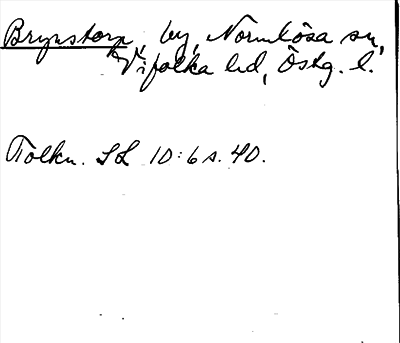 Brynstorp, by, Normlösa sn,
Vifolka hd, Östg. l.
Tolkn. SL 10:6 s. 40.